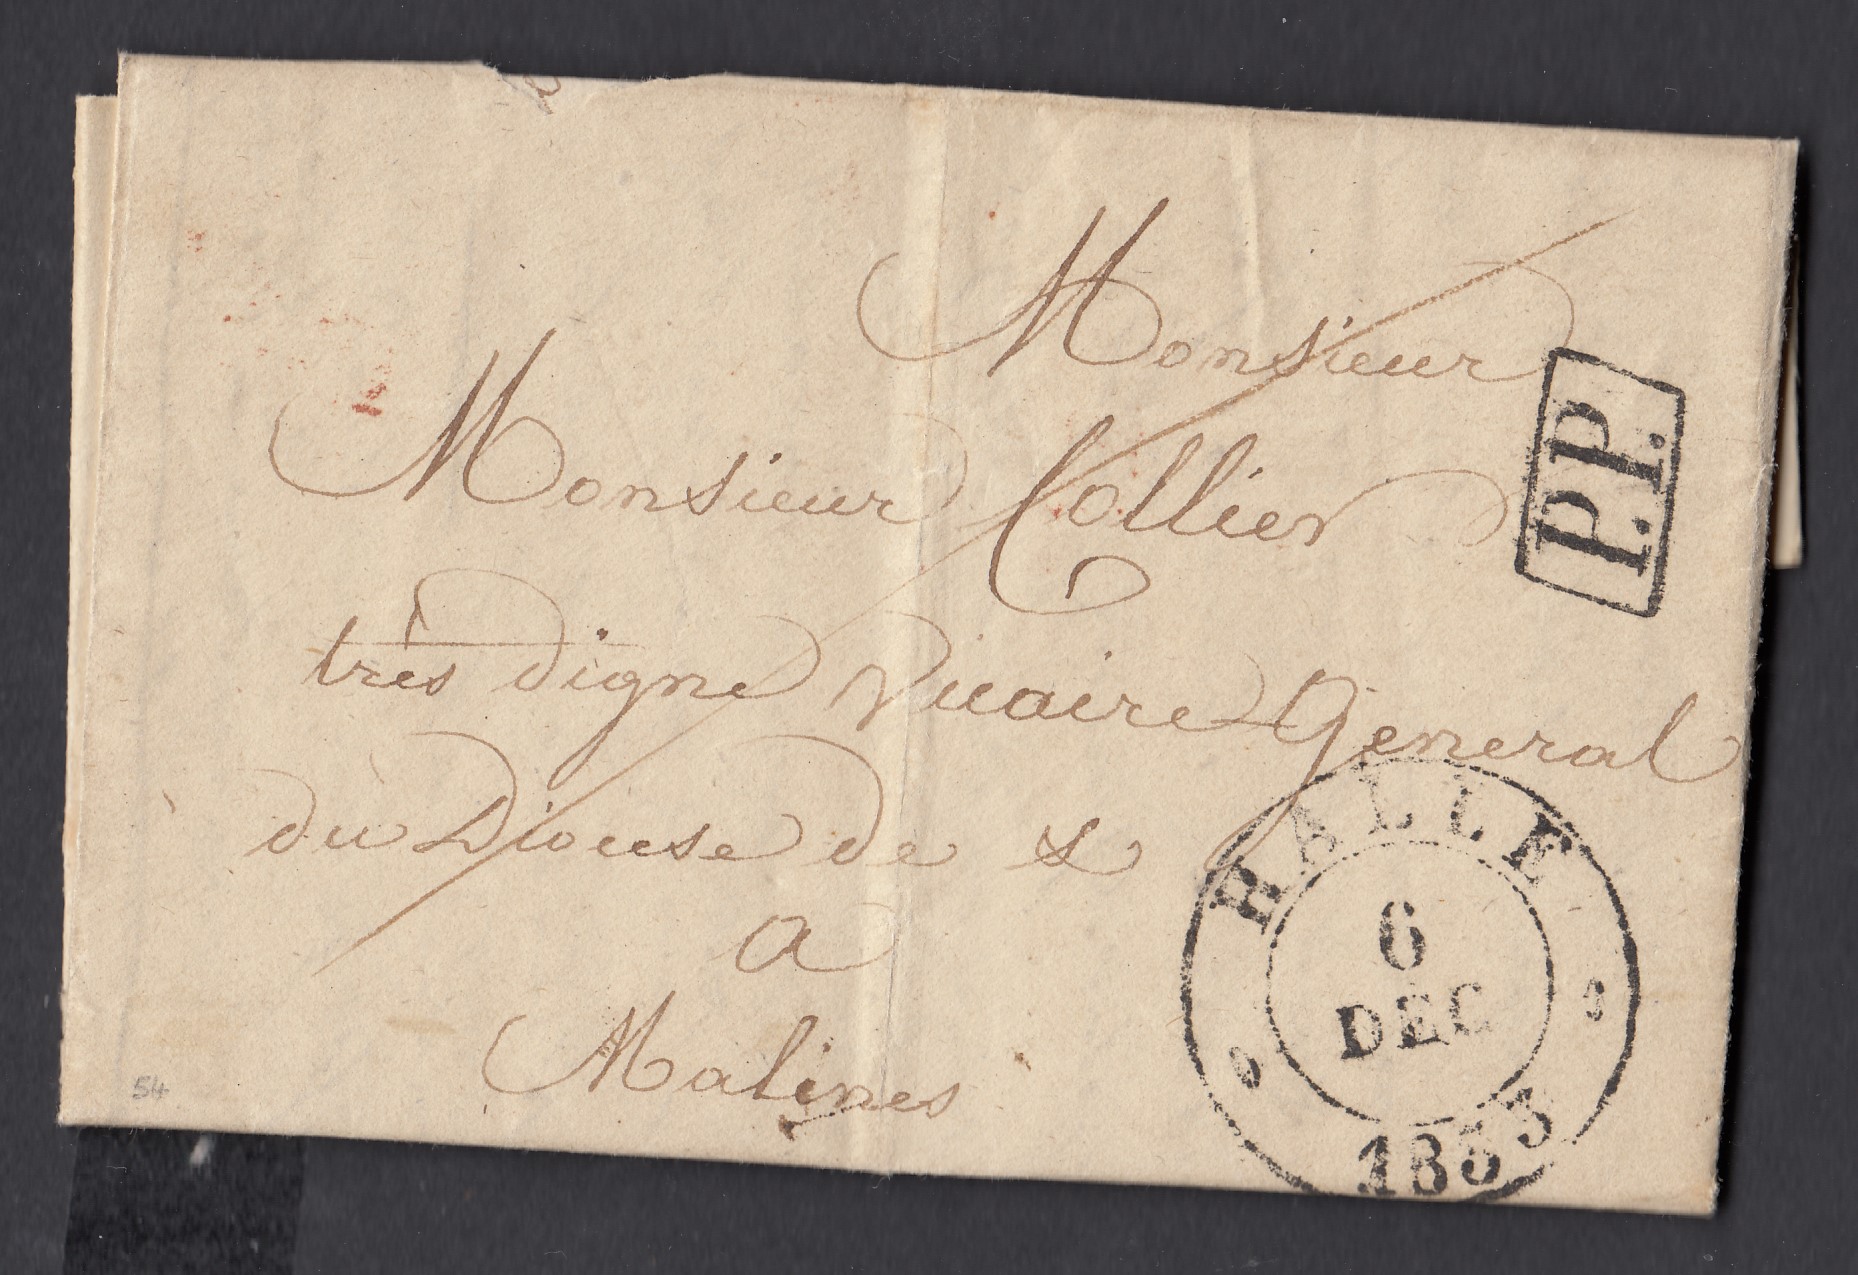 Monsieur
Monsieur Collier
très digne Vicaire General
du Diocese de &
a
Malines
P.P.
HALLE
6
DEC
1833
54